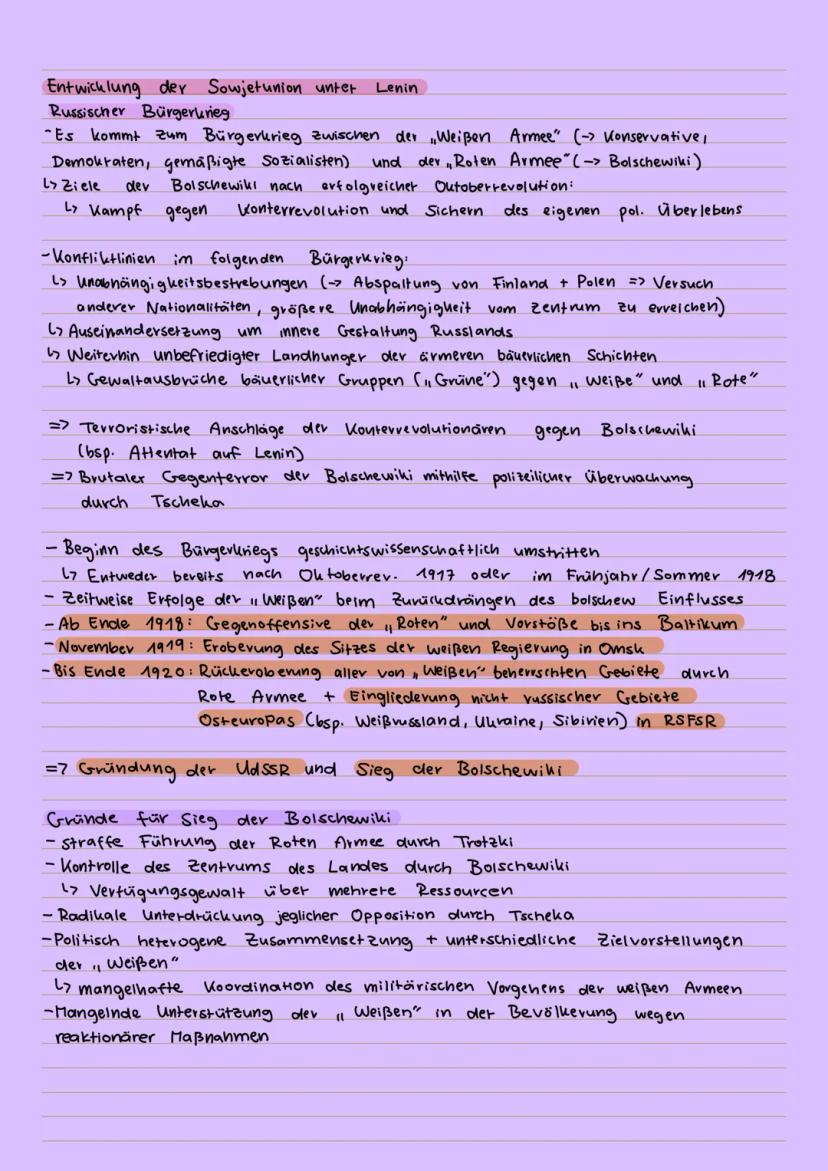 Entwicklung der Sowjetunion unter Lenin
Russischer Bürgerkrieg
- Es kommt zum Bürgerkrieg zwischen der „Weißen Armee" (-> Konservative,
Demokraten, gemäßigte Sozialisten) und der „Roten Armee" (-> Bolschewiki)
↳ Ziele der Bolschewiki nach erfolgreicher Oktoberrevolution:
↳ Kampf gegen Konterrevolution und Sichern des eigenen pol. Überlebens
- Konfliktlinien im folgenden Bürgerkrieg:
↳ Unabhängigkeitsbestrebungen (-> Abspaltung von Finland + Polen => Versuch
anderer Nationalitäten, größere Unabhängigkeit vom Zentrum zu erreichen)
↳ Auseinandersetzung um innere Gestaltung Russlands
↳ Weiterhin unbefriedigter Landhunger der ärmeren bäuerlichen Schichten
↳ Gewaltausbrüche bäuerlicher Gruppen („Grüne") gegen „Weiße" und „Rote"
=> Terroristische Anschläge der Konterrevolutionären gegen Bolschewiki
(bsp. Attentat auf Lenin)
=> Brutaler Gegenterror der Bolschewiki mithilfe polizeilicher Überwachung
durch Tscheka
- Beginn des Bürgerkriegs geschichtswissenschaftlich umstritten
↳ Entweder bereits nach Oktoberrev. 1917 oder im Frühjahr/Sommer 1918
- Zeitweise Erfolge der „Weißen" beim Zurückdrängen des bolschew Einflusses
- Ab Ende 1918: Gegenoffensive der „Roten" und Vorstöße bis ins Baltikum
- November 1919: Eroberung des Sitzes der weißen Regierung in Omsk
- Bis Ende 1920: Rückeroberung aller von „Weißen" beherrschten Gebiete durch
Rote Armee + Eingliederung nicht russischer Gebiete
Osteuropas (bsp. Weißrussland, Ukraine, Sibirien) in RSFSR
=> Gründung der UdSSR und Sieg der Bolschewiki
Gründe für Sieg der Bolschewiki
- straffe Führung der Roten Armee durch Trotzki
- Kontrolle des Zentrums des Landes durch Bolschewiki
↳ Verfügungsgewalt über mehrere Ressourcen
- Radikale Unterdrückung jeglicher Opposition durch Tscheka
- Politisch heterogene Zusammensetzung + unterschiedliche Zielvorstellungen
der „Weißen"
↳ mangelhafte Koordination des militärischen Vorgehens der weißen Armeen
- Mangelnde Unterstützung der „Weißen" in der Bevölkerung wegen
reaktionärer Maßnahmen